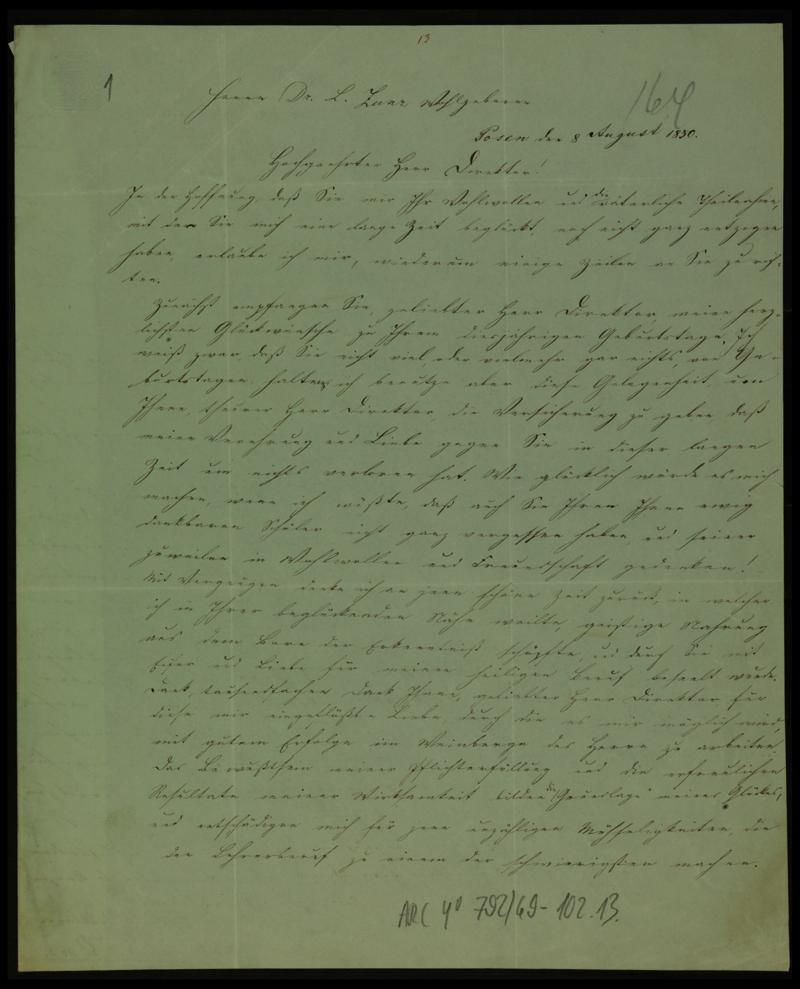 13
1
164
Herrn Dr. L. Zunz Wohlgeboren
Posen den 8 August 1850.
Hochgeehrter Herr Direktor!
In der Hoffnung, daß Sie mir Ihr Wohlwollen und die väterliche Theilnahme,
mit der Sie mich eine lange Zeit beglückt, noch nicht ganz entzogen
haben, erlaube ich mir, wiederum einige Zeilen an Sie zu rich-
ten.
Zunächst empfangen Sie, geliebter Herr Direktor, meine herz-
lichsten Glückwünsche zu Ihrem diesjährigen Geburtstage. Ich
weiß zwar, daß Sie nicht viel oder vielmehr gar nichts, von Ge-
burtstagen halten, ich benütze aber diese Gelegenheit, um
Ihnen, theurer Herr Direktor, die Versicherung zu geben, daß
meine Verehrung und Liebe gegen Sie in dieser langen
Zeit um nichts verloren hat. Wie glücklich würde es mich
machen, wenn ich wüßte, daß auch Sie Ihren Ihnen ewig
dankbaren Schüler nicht ganz vergessen haben, und seiner
zuweilen in Wohlwollen und Freundschaft gedenken!
Mit Vergnügen denke ich an jene schöne Zeit zurück, in welcher
ich in Ihrer beglückenden Nähe weilte, geistige Nahrung
aus dem Born der Erkenntniß schöpfte, und durch Sie mit
Eifer und Liebe für meinen heiligen Beruf beseelt wurde.
Dank, tausendfachen Dank Ihnen, geliebter Herr Direktor, für
diese mir eingeflößte Liebe, durch die es mir möglich wird,
mit gutem Erfolge im Weinberge des Herrn zu arbeiten.
Das Bewußtsein meiner Pflichterfüllung und die erfreulichen
Resultate meiner Wirksamkeit bilden die Grundlage meines Glückes,
und entschädigen mich für jene unzähligen Mühseligkeiten, die
den Lehrerberuf zu einem der schwierigsten machen.
ARC 4° 792/G9-102.13.